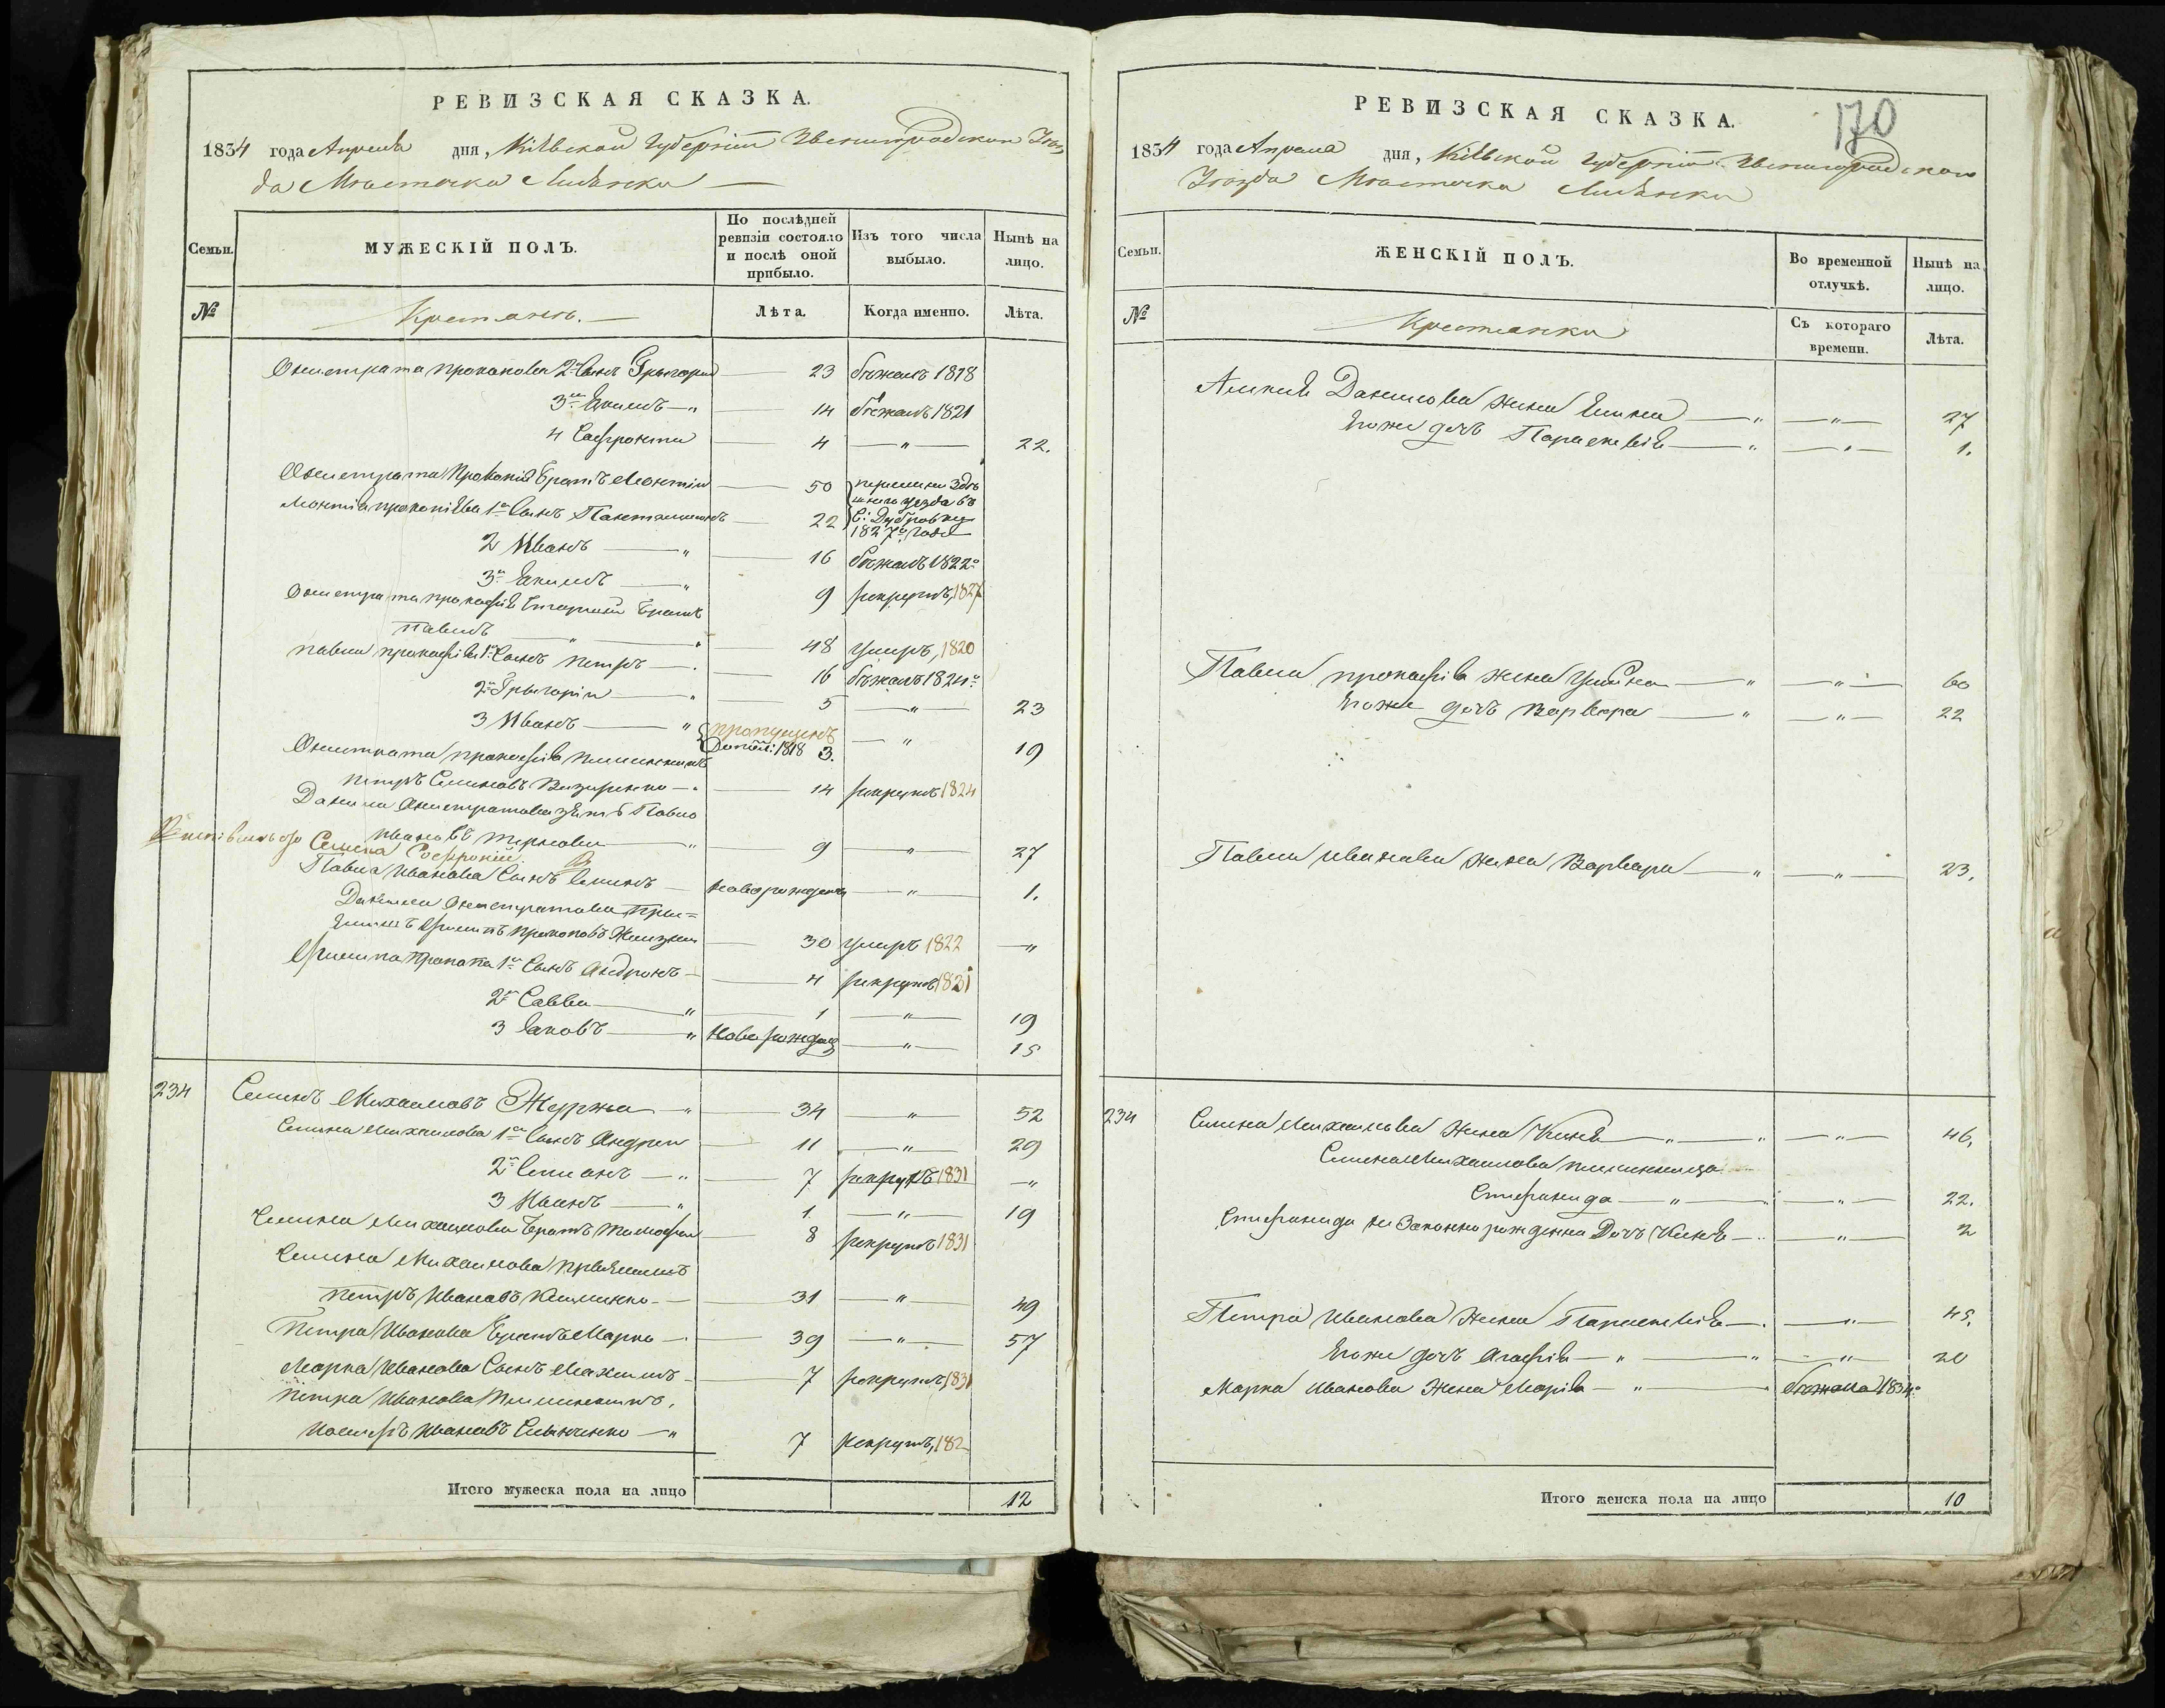 РЕВИЗСКАЯ СКАЗКА.
1834 года Апреля дня, Кіевской Губерніи Звенигородскаго Уез
да Мѣстечка Лисянки
Семьи. МУЖЕСКІЙ ПОЛЪ. По послѣдней ревизіи состояло и послѣ оной прибыло. Изъ того числа выбыло. Нынѣ на лицо.
№ Крестьянъ. Лѣта. Когда именно. Лѣта.
Онистрата Прокопова 2й Сынъ Грыгорій 23 бѣжалъ 1818
3й Якимъ 14 бѣжалъ 1821
4 Сафронти 4 22.
Онистрата Прокопія Братъ Леонтій 50 здѣ
шнего уезда въ
Леонтія Прокопіева 1й Сынъ Пантелимонъ 22 С: Дубровку
1827 года
2 Иванъ 16 бѣжалъ 1822
3й Якимъ 9 рекрутъ, 1827
Онистрата Прокофія Братъ
Павелъ 48 умеръ, 1820
Павла Прокофіева 1й Сынъ Петръ 16 бѣжалъ 1824
2й Грыгорій 5 23
3 Иванъ пропущенъ
1818 3. 19
Онистрата Прокофіева племянникъ
Петръ Семеновъ 14 рекрутъ 1824
Данила Онистратова зять Павло
Ивановъ 9 27
Семена Софроній.
Павла Иванова Сынъ Семенъ новорожденъ 1.
Данила Онистратова
Прокоповъ 30 умеръ 1822
Прокопа 1й Сынъ Андронъ 4 рекрутъ 1831
2й Савва 1 19
3 Яковъ новорожден 15
234 Семенъ Михаиловъ Журжа 34 52
Семена Михаилова 1й Сынъ Андрей 11 29
2й Степанъ 7 рекрутъ 1831
3 Иванъ 1 19
Семена Михаилова Братъ Тимофей 8 рекрутъ 1831
Семена Михаилова
Петръ Ивановъ 31 49
Петра Иванова Братъ Марко 39 57
Марка Иванова Сынъ Максимъ 7 рекрутъ, 1831
Петра Иванова Племянникъ,
Ивановъ 7 рекрутъ, 182
Итого мужеска пола на лицо 12
170
РЕВИЗСКАЯ СКАЗКА.
1834 года Апреля дня, Кіевской Губерніи Звенигородскаго
Уезда Мѣстечка Лисянки
Семьи. ЖЕНСКІЙ ПОЛЪ. Во временной отлучкѣ. Нынѣ на лицо.
№ Крестьянки Съ котораго времени. Лѣта.
Данилова жена 27
Егоже дочь Параскевія 1.
Павла Прокофія жена 60
Егоже дочь Варвара 22
Павла Иванова жена Варвара 23.
234 Семена Михаилова Жена 46.
Семена Михаилова племянница
Стефанида 22.
Стефаниды незаконнорожденна Дочь 2
Петра Иванова Жена Параскевія 45.
Егоже дочь Агафія 20
Марка Иванова Жена Марія бѣжала 1834
Итого женска пола на лицо 10